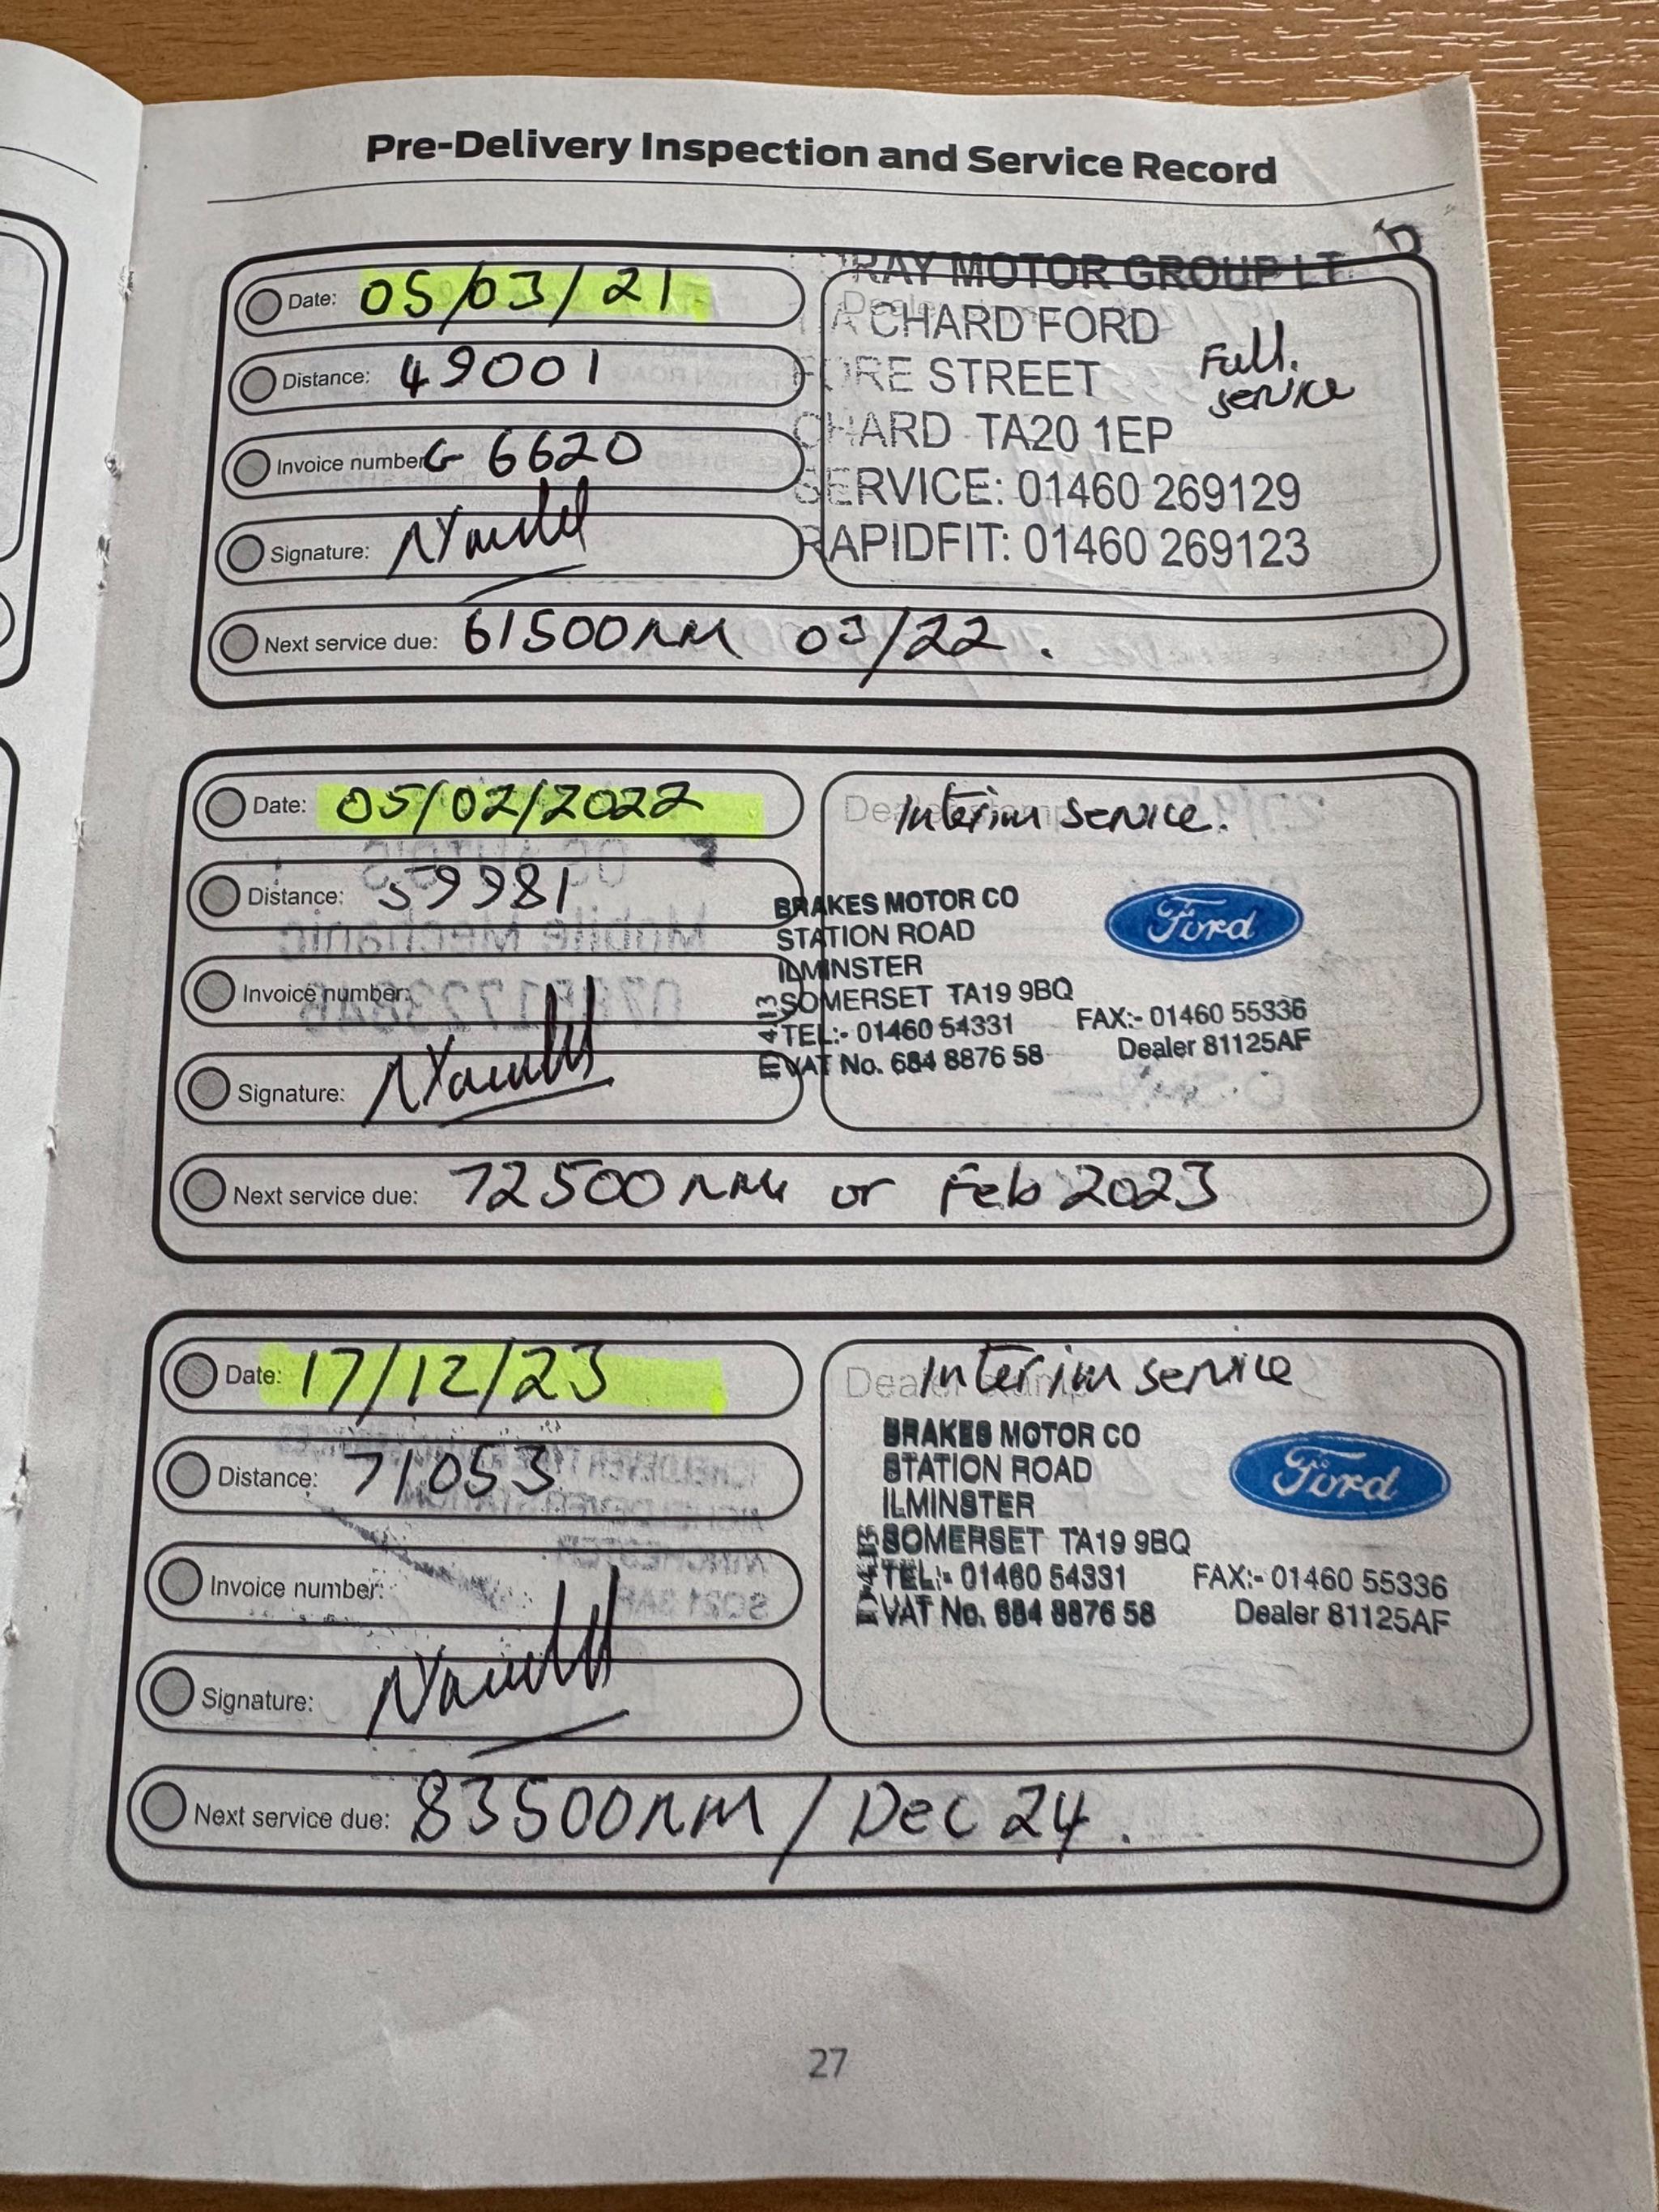 Pre-Delivery Inspection and Service Record
Date: 05/03/21
Distance: 49001
Invoice number: G 6620
Signature:
Next service due: 61500 03/22.
RAY MOTOR GROUP LT
CHARD FORD
FORE STREET
CHARD TA20 1EP
SERVICE: 01460 269129
RAPIDFIT: 01460 269123
Full.
service
Date: 05/02/2022
Distance: 59981
Invoice number:
Signature:
Next service due: 72500 or Feb 2023
Interim service.
Ford
BRAKES MOTOR CO
STATION ROAD
ILMINSTER
SOMERSET TA19 9BQ
TEL:- 01460 54331 FAX:- 01460 55336
VAT No. 684 8876 58 Dealer 81125AF
Date: 17/12/23
Distance: 71053
Invoice number:
Signature:
Next service due: 83500 / Dec 24.
Interim service
Ford
BRAKES MOTOR CO
STATION ROAD
ILMINSTER
SOMERSET TA19 9BQ
TEL:- 01460 54331 FAX:- 01460 55336
VAT No. 684 8876 58 Dealer 81125AF
27